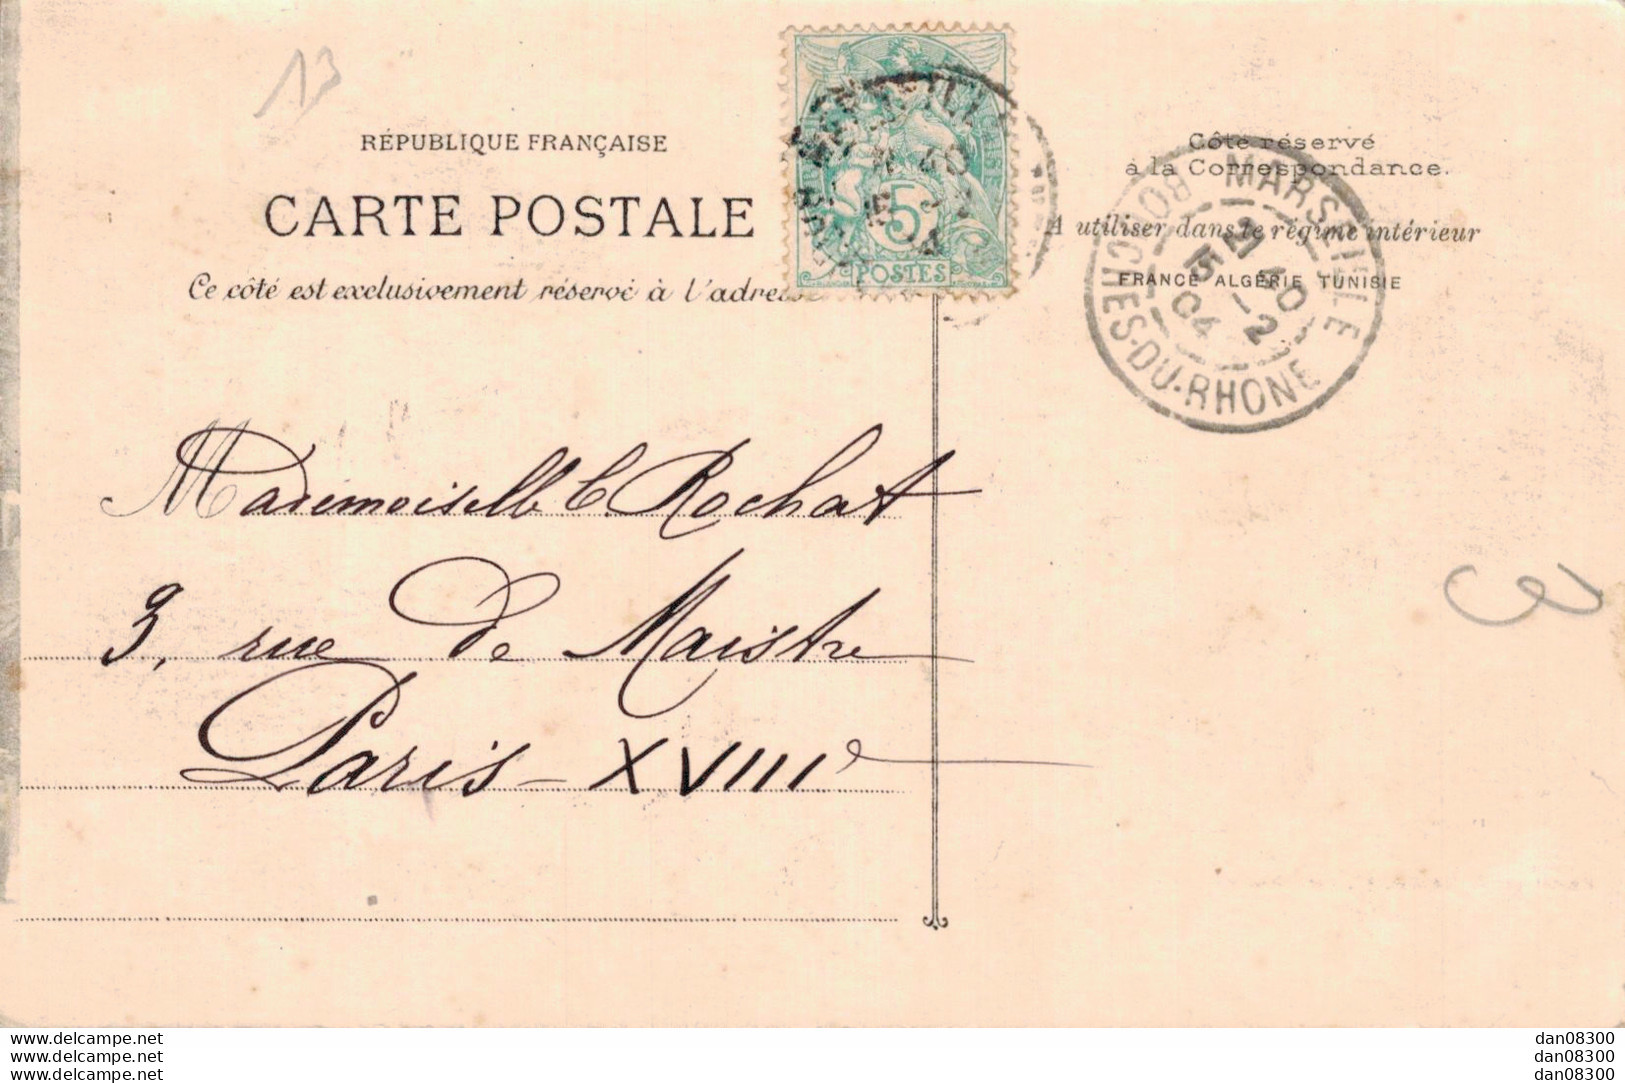 13
RÉPUBLIQUE FRANÇAISE
CARTE POSTALE
Ce côté est exclusivement réservé à l'adresse
5
POSTES
Côté réservé
à la Correspondance.
A utiliser dans le régime intérieur
FRANCE ALGÉRIE TUNISIE
MARSEILLE
15 2
04
BOUCHES-DU-RHONE
Mademoiselle C Rochat
3, rue de Maistre
Paris - XVIIIe
3
www.delcampe.net
www.delcampe.net
www.delcampe.net
dan08300
dan08300
dan08300